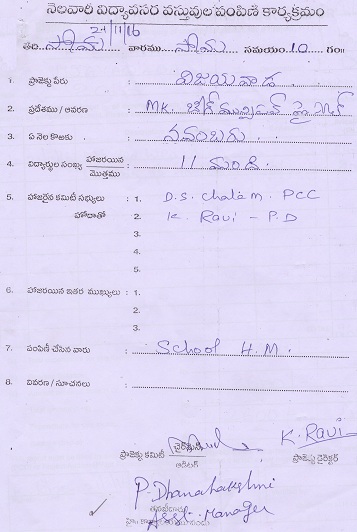 నెలవారీ విద్యావసర వస్తువుల పంపిణీ కార్యక్రమం
21/11/16
తేది. సోమ వారము సోమ సమయం 10 గం॥
1. ప్రాజెక్టు పేరు : విజయవాడ
2. ప్రదేశము / ఆవరణ : MK. హైస్కూల్
3. ఏ నెల కొఱకు : నవంబరు.
4. విద్యార్థుల సంఖ్య హాజరయిన మొత్తము : 11 మంది.
5. హాజరైన కమిటీ సభ్యులు : 1. D.S. Chalam. PCC
హోదాతో 2. K. Ravi - P.D
3.
4.
5.
6. హాజరయిన ఇతర ముఖ్యులు : 1.
2.
3.
7. పంపిణీ చేసిన వారు : School H.M.
8. వివరణ / సూచనలు :
K. Ravi
ప్రాజెక్టు కమిటీ చైర్మన్ ప్రాజెక్టు డైరెక్టర్
ఆడిటర్
P. Dhanalakshmi
Asst. Manager